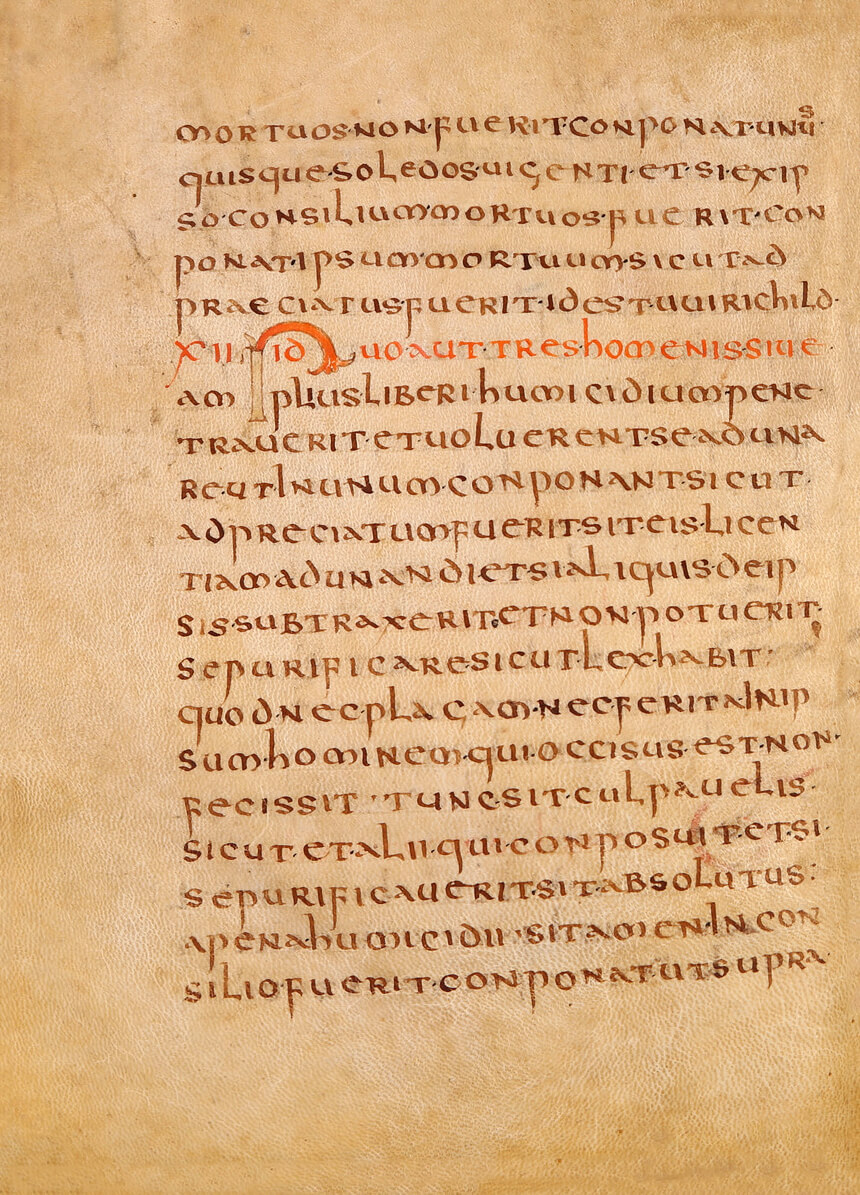 mortuos·non·fuerit·conponat·unus·
quisque·soledos·uigenti·et·si·exip
so·consilium·mortuos·fuerit·con
ponat·ipsum·mortuum·sicut ad
praeciatus·fuerit·idest·uuirichild·
XII id Quo·aut·tres·homenis·siue·
am plius liberi·humicidium pene·
trauerit·et uoluerent·se ad una
re·ut In unum·conponant·sicut·
ad preciatum fuerit sit·eis·licen
tiam adunandi et si aliquis·de ip
sis·subtraxerit·et non·potuerit·
se purificare sicut·lex·habit:
quod·nec·placam·nec ferita·In ip
sum·hominem·qui·occisus·est·non·
fecissit·tunc·sit·culpauelis·
sicut·et·alii·qui·conposuit·et·si·
se purificauerit·sit·absolutus:
a pena·humicidii·si tamen·In con
silio fuerit·conponat·ut supra